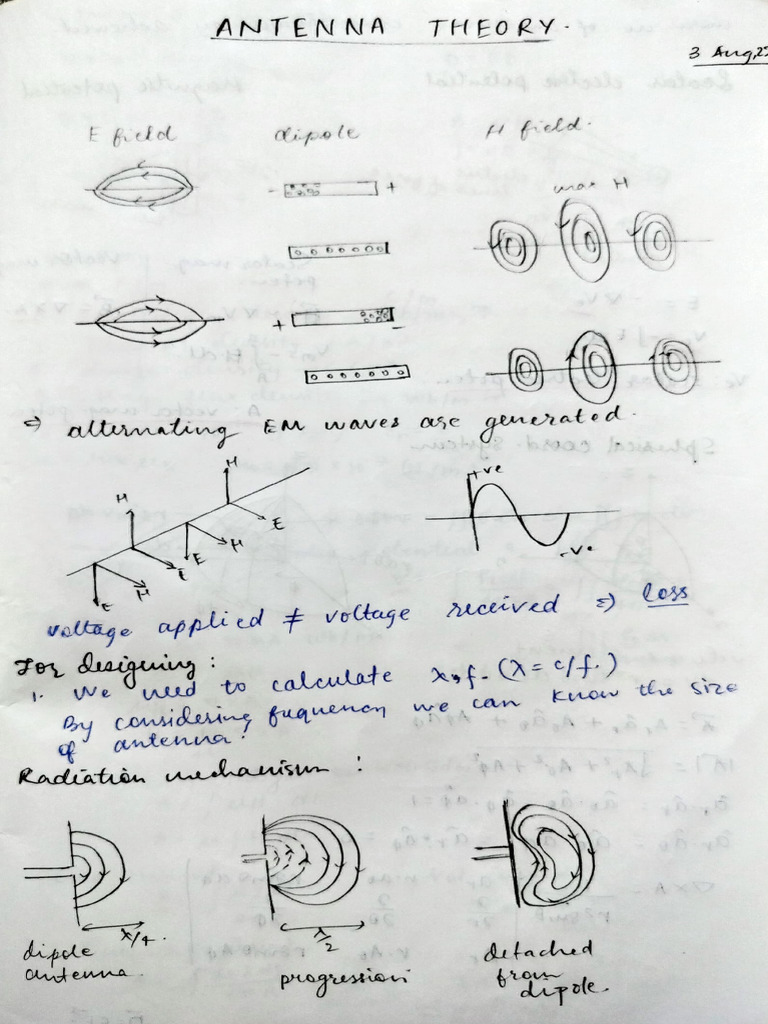 ANTENNA THEORY.
3 Aug, 2
E field dipole H field.
max H
- +
+ -
⇒ alternating EM waves are generated.
H H +ve
E H E E H E -ve
voltage applied ≠ voltage received ⇒ loss
For designing:
1. We need to calculate λ, f. (λ = c/f.)
By considering fuquency we can know the size
of antenna.
Radiation mechanism :
λ/4. λ/2
dipole antenna. progression detached from dipole.